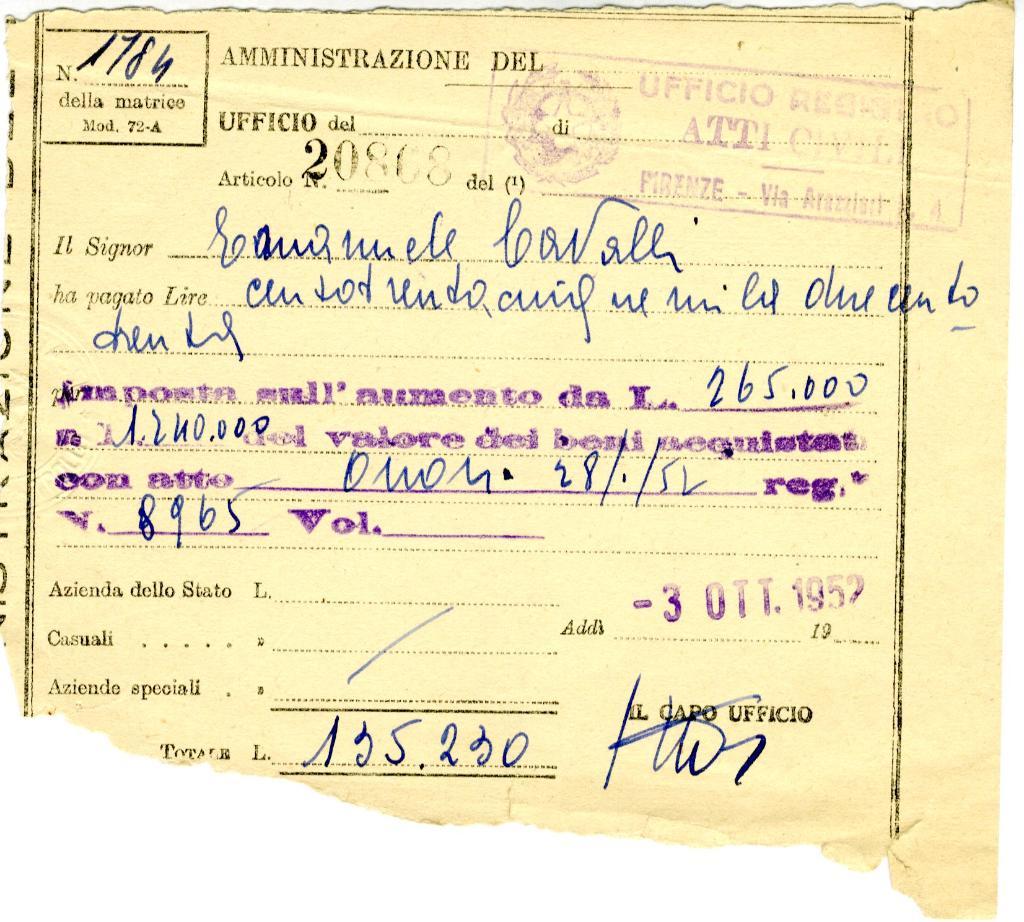 N. 1784
della matrice
Mod. 72-A
AMMINISTRAZIONE DEL
UFFICIO del di
Articolo N. 20868 del (1)
UFFICIO REGISTRO
ATTI CIVILI
FIRENZE - Via Arazzieri N. 4
Il Signor Emanuele Cavalli
ha pagato Lire centotrentacinquemila duecento
trenta
per Imposta sull'aumento da L. 265.000
a L. 1.240.000 del valore dei beni acquistati
con atto 28/./52 reg.°
N. 8965 Vol.
Azienda dello Stato L.
Casuali . . . . . »
Aziende speciali . »
Totale L. 135.230
Addì -3 OTT. 1952 19
IL CAPO UFFICIO